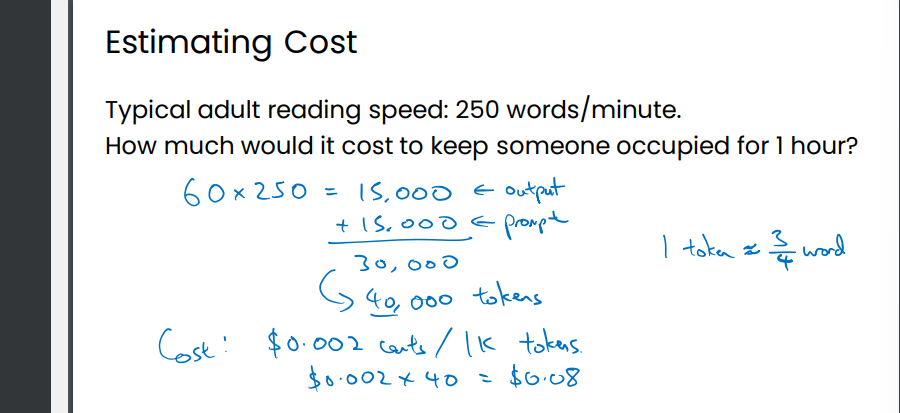 Estimating Cost
Typical adult reading speed: 250 words/minute.
How much would it cost to keep someone occupied for 1 hour?
60 × 250 = 15,000 ← output
+ 15,000 ← prompt
30,000
1 token ≈ 3/4 word
↳ 40,000 tokens
Cost: $0.002 cents / 1K tokens.
$0.002 × 40 = $0.08